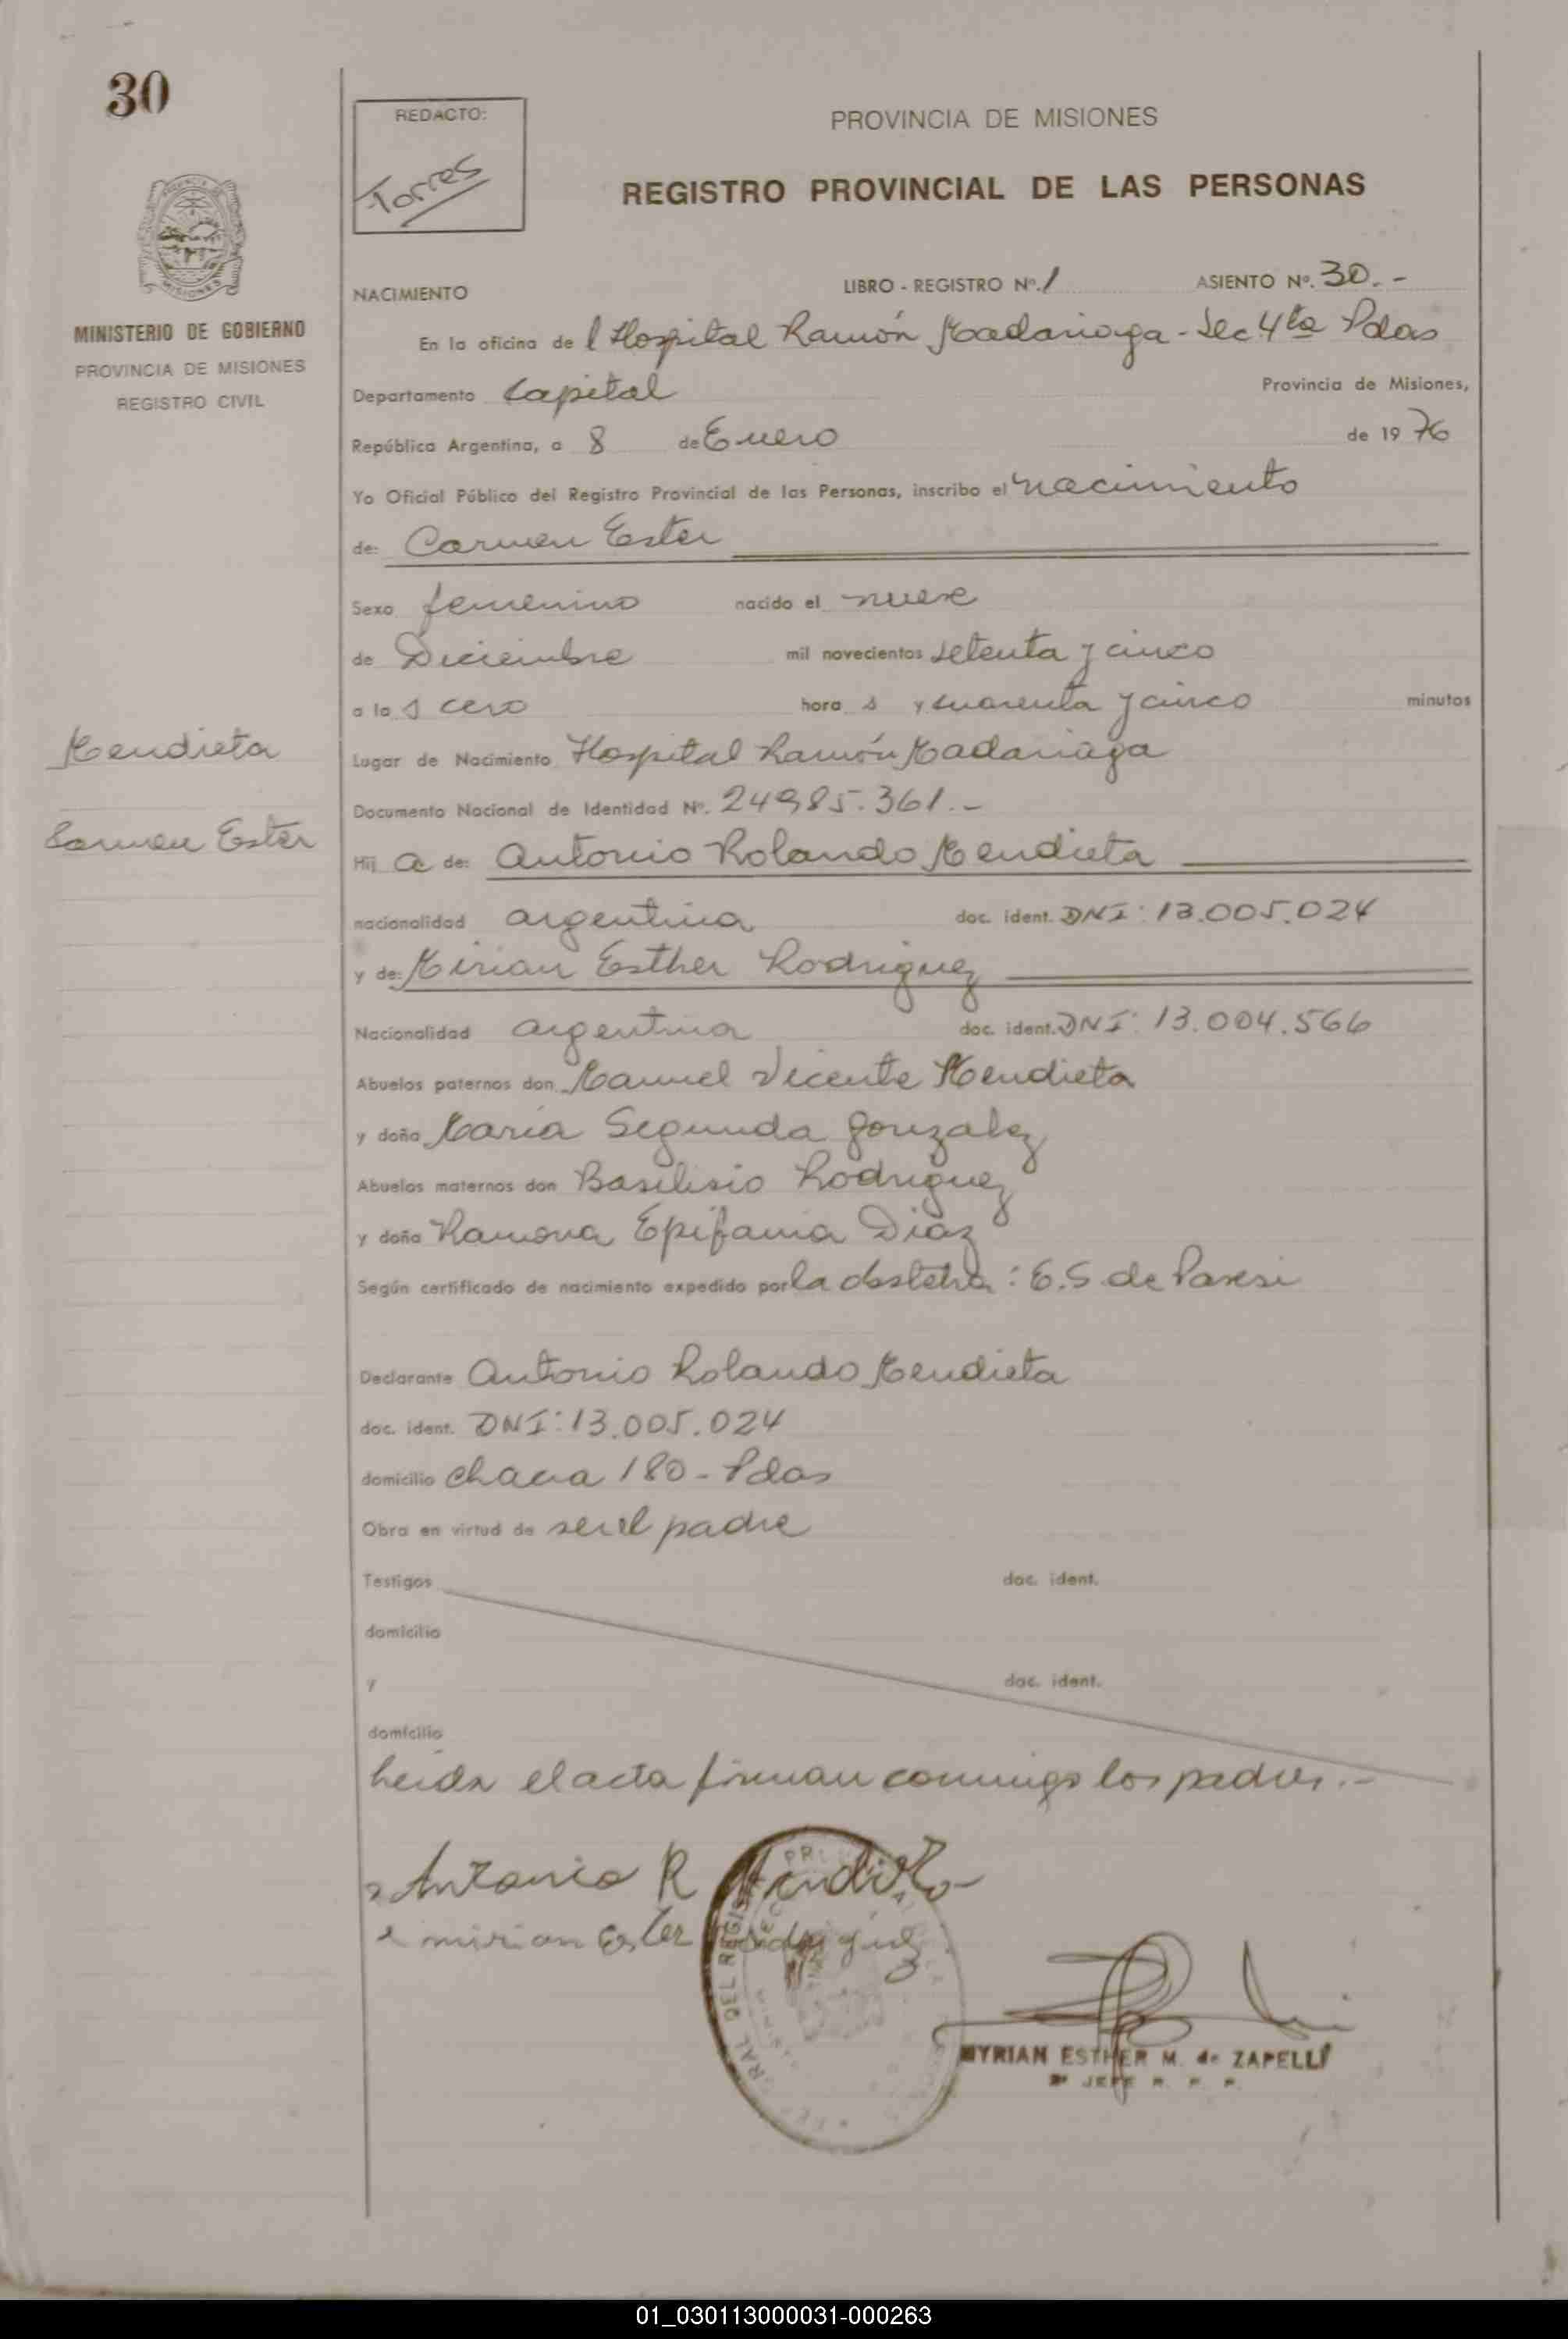 30
REDACTO:
Torres
PROVINCIA DE MISIONES
REGISTRO PROVINCIAL DE LAS PERSONAS
MINISTERIO DE GOBIERNO
PROVINCIA DE MISIONES
REGISTRO CIVIL
NACIMIENTO LIBRO - REGISTRO Nº. 1 ASIENTO Nº. 30.-
En la oficina de l Hospital Ramón Madariaga - Sec 4ta Pdas
Departamento Capital Provincia de Misiones,
República Argentina, a 8 de Enero de 1976
Yo Oficial Público del Registro Provincial de las Personas, inscribo el nacimiento
de: Carmen Ester
Sexo femenino nacido el nueve
de Diciembre mil novecientos setenta y cinco
a la s cero hora s y cuarenta y cinco minutos
Mendieta
Carmen Ester
Lugar de Nacimiento Hospital Ramón Madariaga
Documento Nacional de Identidad Nº. 24985.361.-
Hij a de: Antonio Rolando Mendieta
nacionalidad argentina doc. ident. DNI: 13.005.024
y de: Mirian Esther Rodriguez
Nacionalidad argentina doc. ident. DNI: 13.004.566
Abuelos paternos don Manuel Vicente Mendieta
y doña Maria Segunda Gonzalez
Abuelos maternos don Basilisio Rodriguez
y doña Ramona Epifania Diaz
Según certificado de nacimiento expedido por la obstetra: E.S de
Declarante Antonio Rolando Mendieta
doc. ident. DNI: 13.005.024
domicilio chacra 180 - Pdas
Obra en virtud de ser el padre
Testigos doc. ident.
domicilio
y doc. ident.
domicilio
Leida el acta firman conmigo los padres.-
Antonio R Mendieta
mirian Ester Rodriguez
MYRIAN ESTHER M. de ZAPELLI
JEFE R. P. P.
01_030113000031-000263